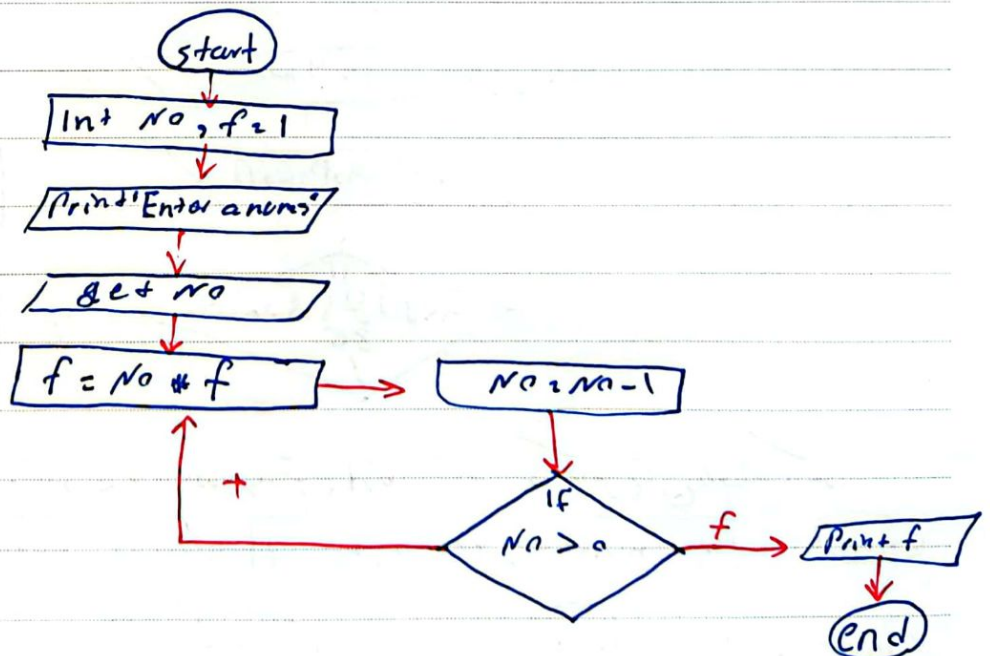 start
Int No, f = 1
Print "Enter a num:"
get No
f = No * f
No = No - 1
If
No > 0
t
f
Print f
end